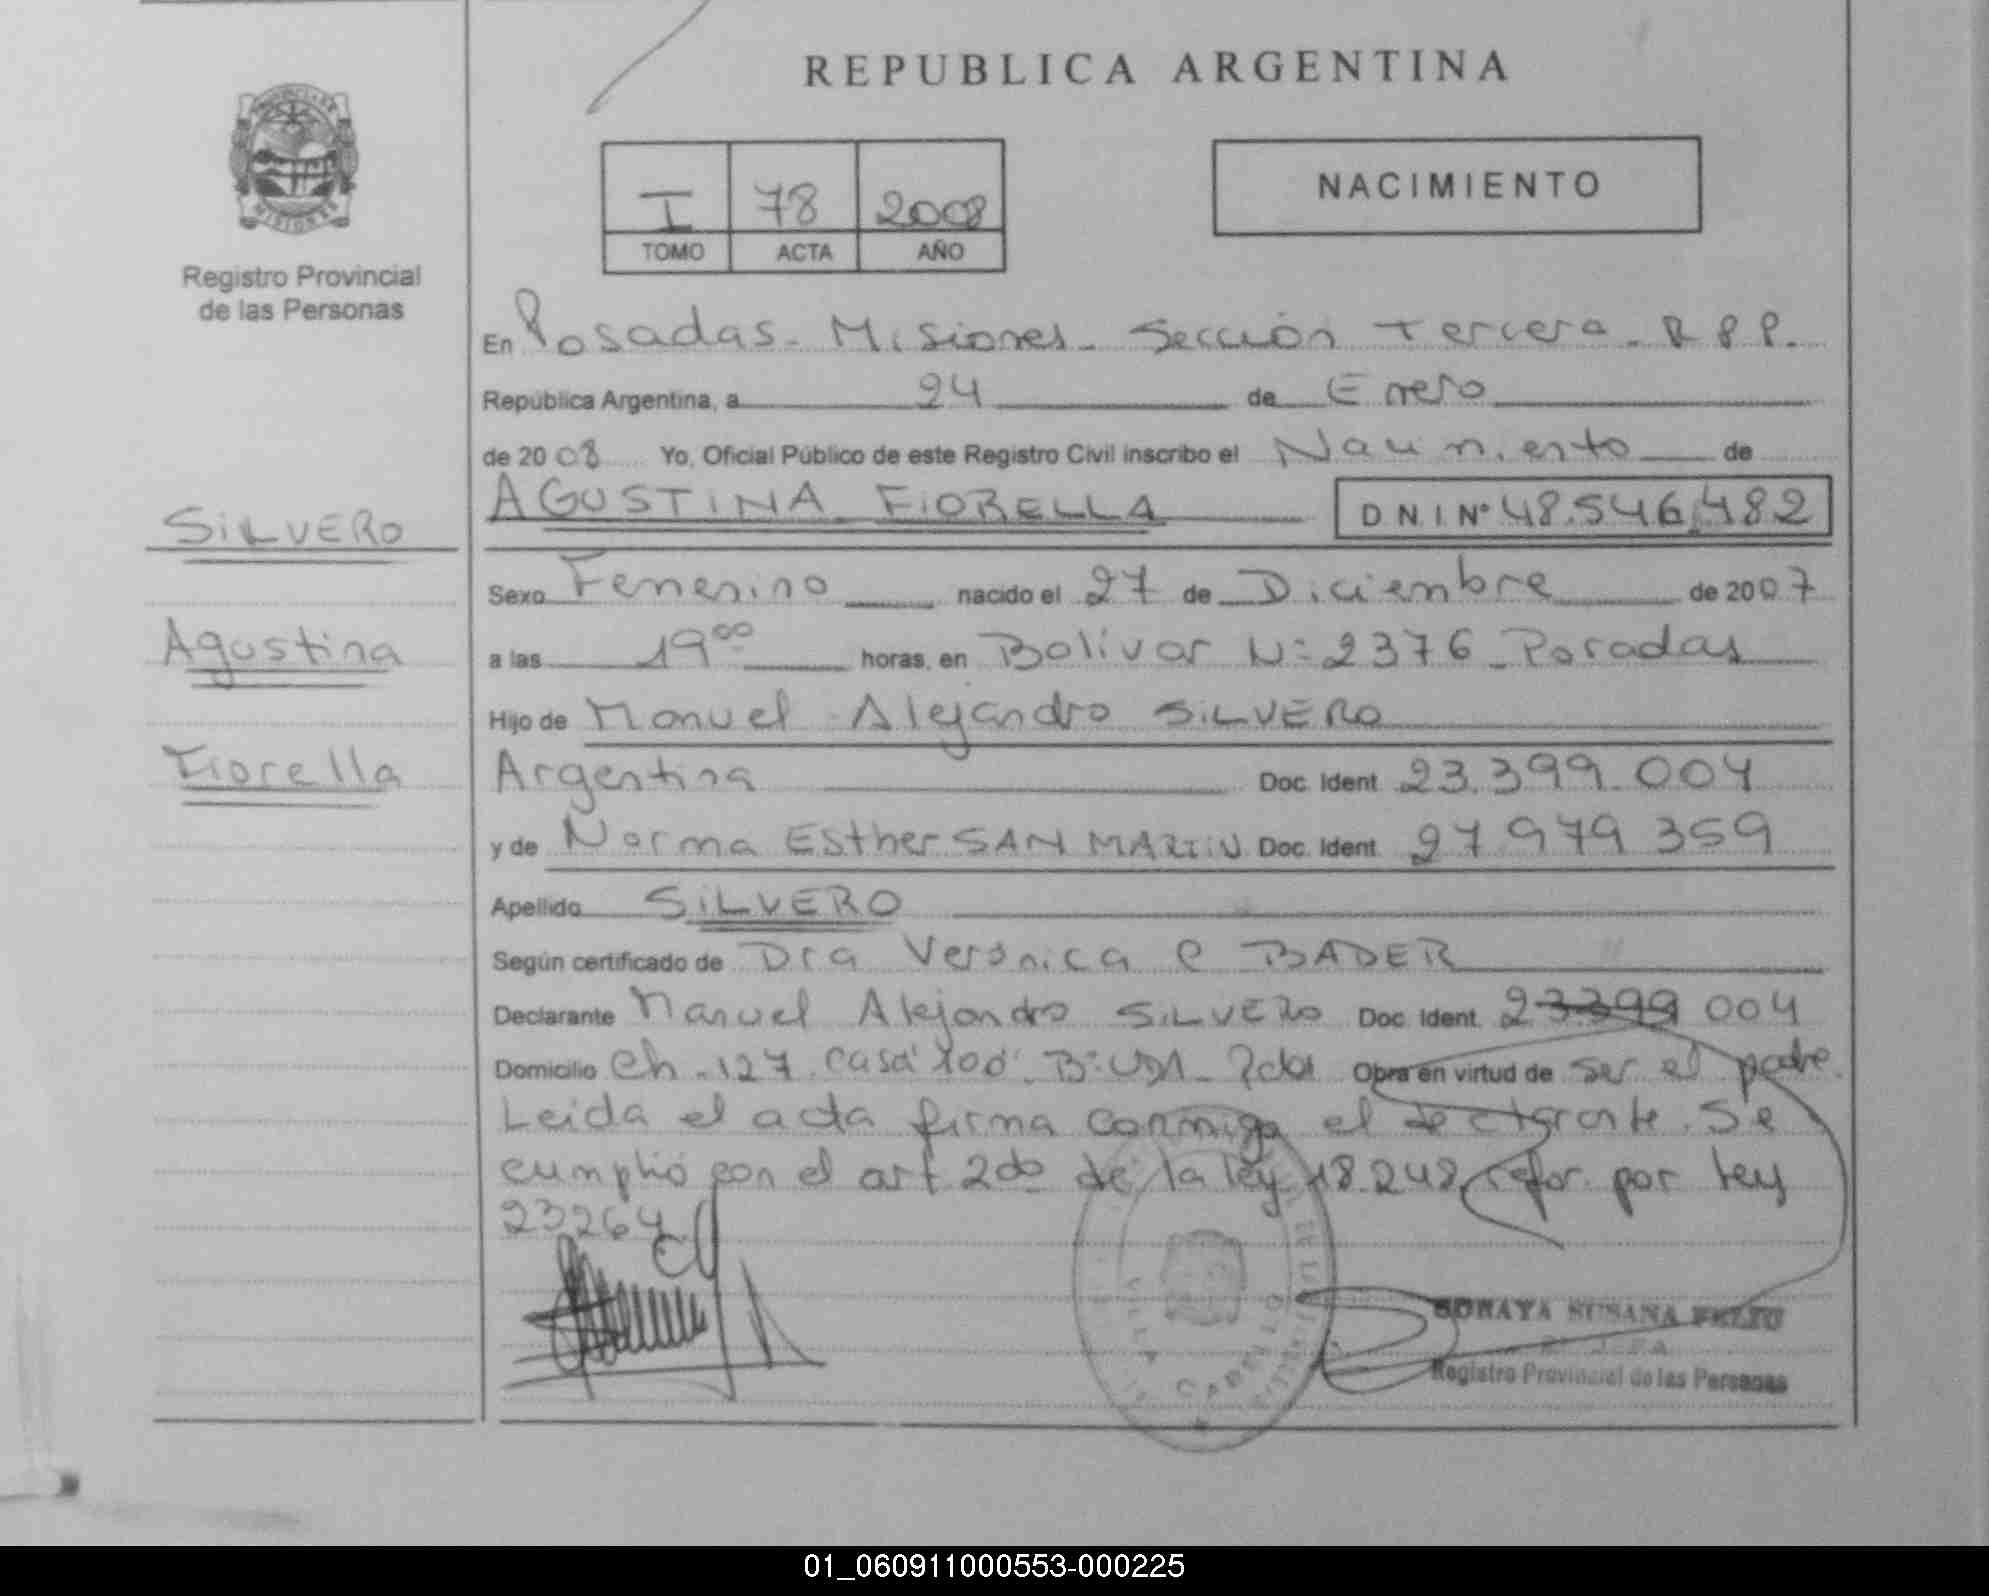 REPUBLICA ARGENTINA
I 78 2008
TOMO ACTA AÑO
NACIMIENTO
MISIONES
Registro Provincial
de las Personas
En Posadas - Misiones - Sección Tercera - R P P.
República Argentina, a 24 de Enero
de 2008 Yo, Oficial Público de este Registro Civil inscribo el Nacimiento de
AGUSTINA FIORELLA D.N.I. Nº 48.546.482
SILVERO
Agustina
Fiorella
Sexo Femenino nacido el 27 de Diciembre de 2007
a las 19 00 horas, en Bolívar Nº 2376 - Posadas
Hijo de Manuel Alejandro SILVERO
Argentina Doc. Ident. 23.399.004
y de Norma Esther SAN MARTIN Doc. Ident. 27 979 359
Apellido SILVERO
Según certificado de Dra Verónica C BADER
Declarante Manuel Alejandro SILVERO Doc. Ident. 23399 004
Domicilio Ch - 127 casa 100 Bº UDA - Obra en virtud de ser el padre.
Leida el acta firma conmigo el declarante. Se
cumplió con el art 2do de la ley 18.248 refor. por ley
23264
VILLA CABELLO
SORAYA SUSANA
Registro Provincial de las Personas
01_060911000553-000225